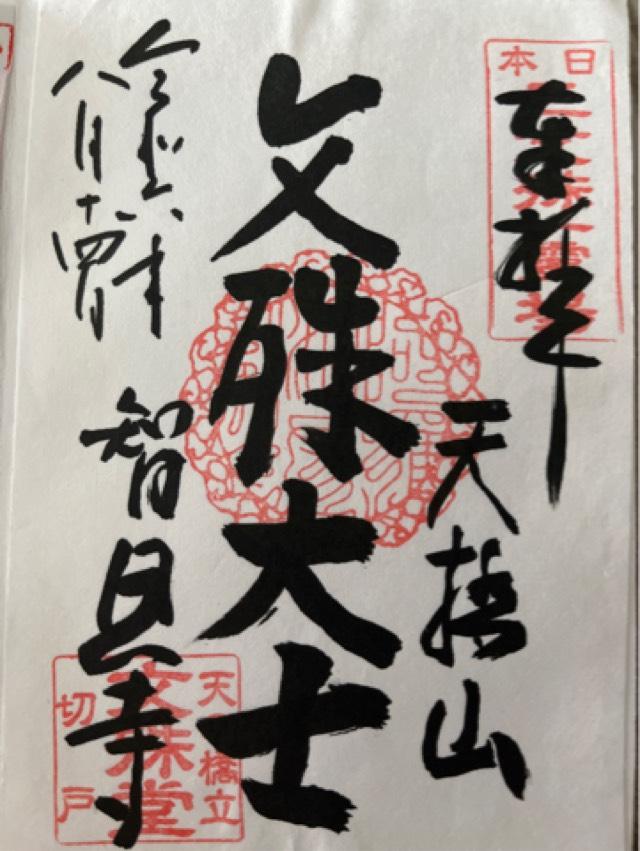 日本
奉拝
天橋山
文殊大士
令和六年
八月十四日
智恩寺
天橋立
文殊堂
切戸